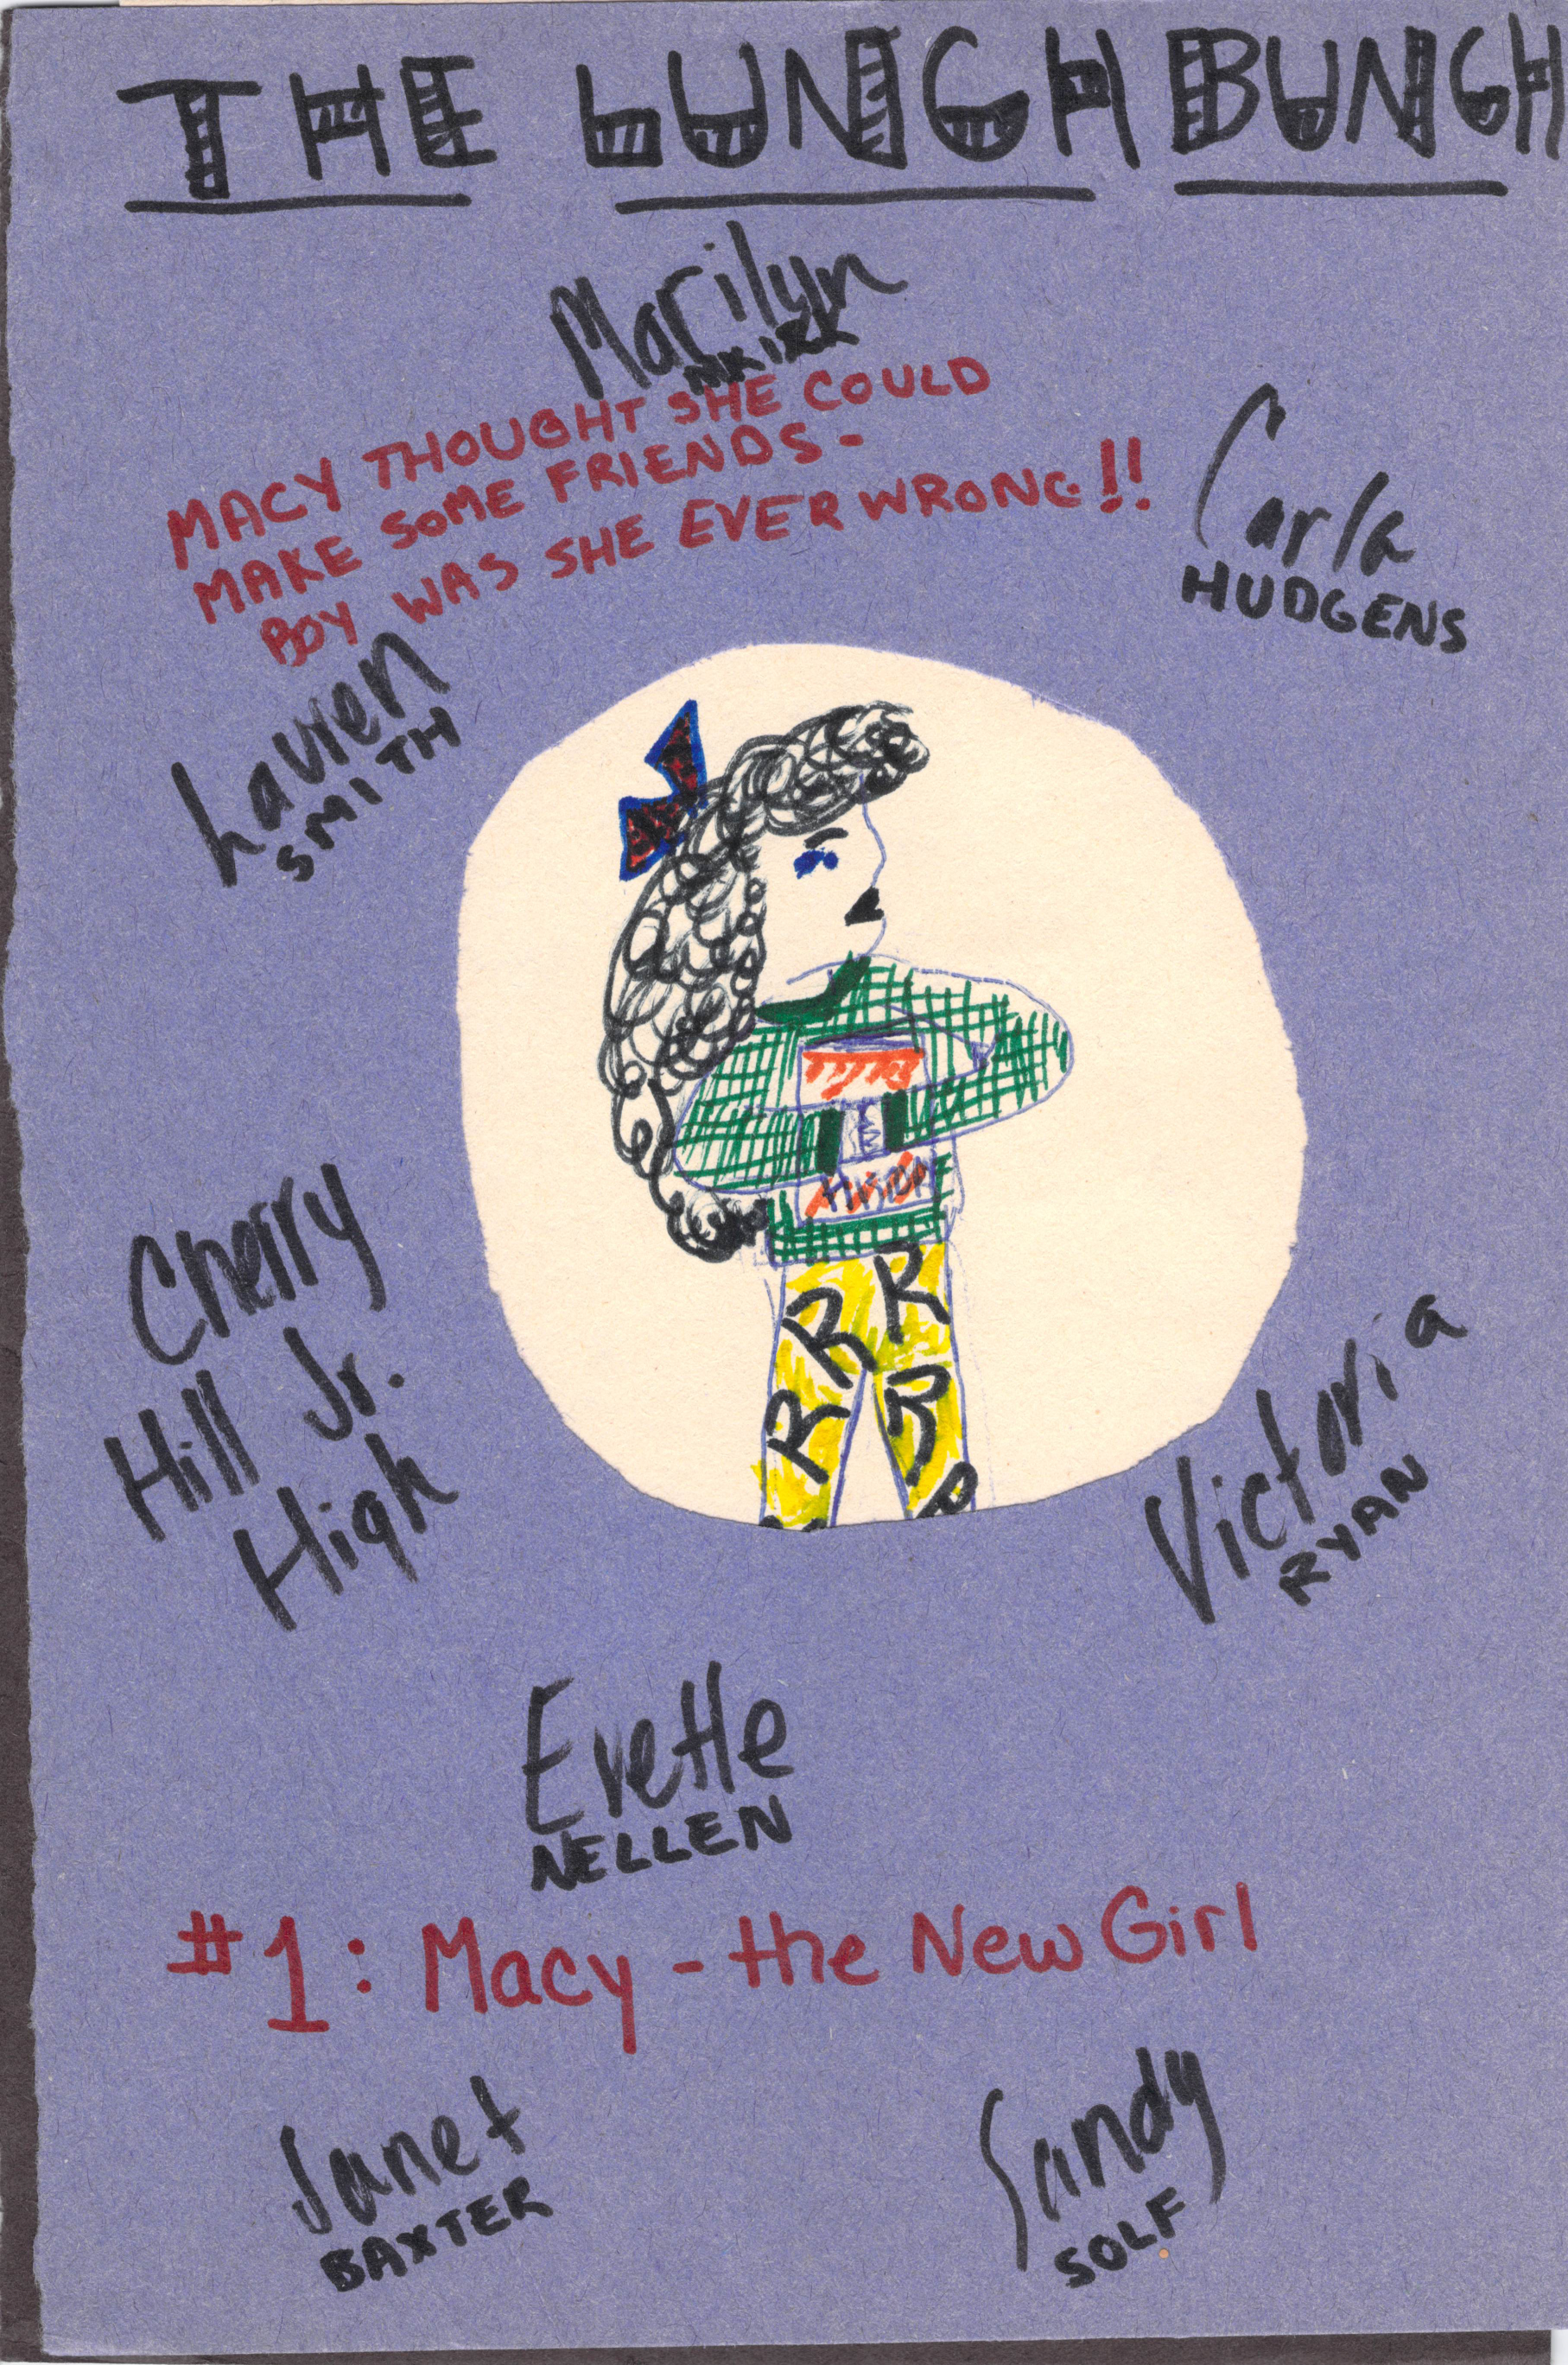 THE LUNCH BUNCH
Marilyn
MACY THOUGHT SHE COULD
MAKE SOME FRIENDS -
BOY WAS SHE EVER WRONG!!
Carla
HUDGENS
Lauren
SMITH
Cherry
Hill Jr.
High
R R
R R
R
Victoria
RYAN
Evette
NELLEN
#1: Macy - the New Girl
Janet
BAXTER
Sandy
SOLF